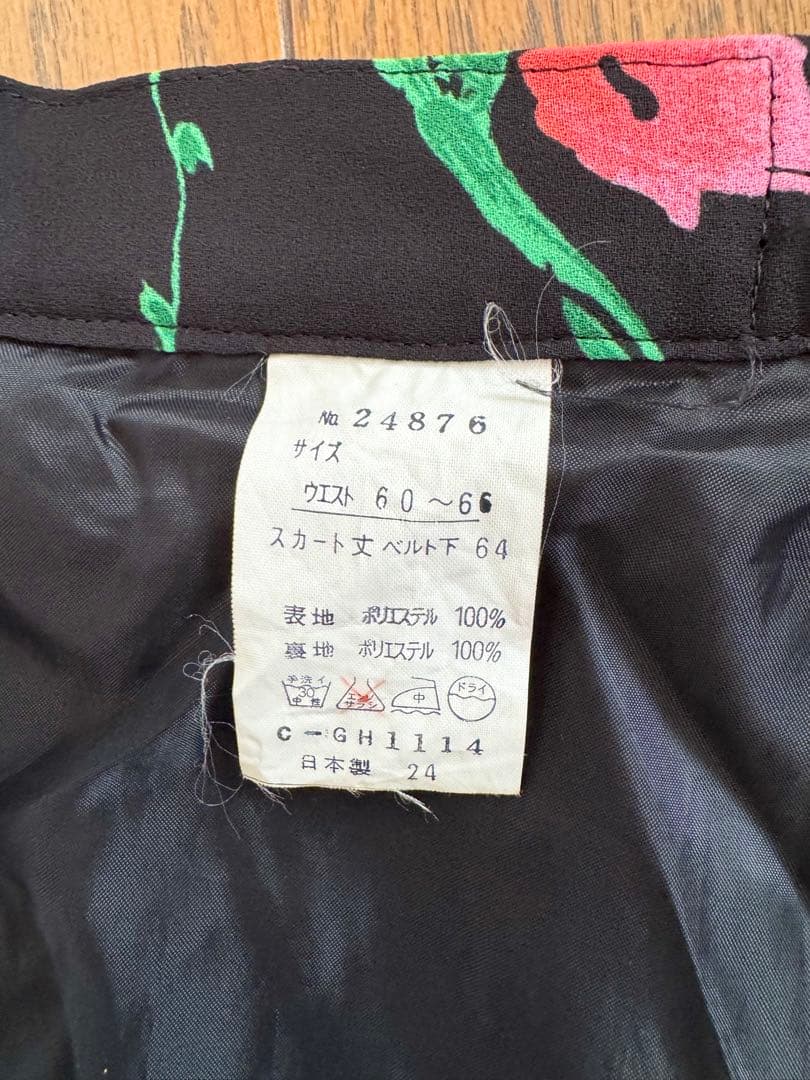 No. 24876
サイズ
ウエスト 60～66
スカート丈 ベルト下 64
表地 ポリエステル 100%
裏地 ポリエステル 100%
手洗イ 30 中性 エンソサラシ 中 ドライ
C-GH1114
日本製 24